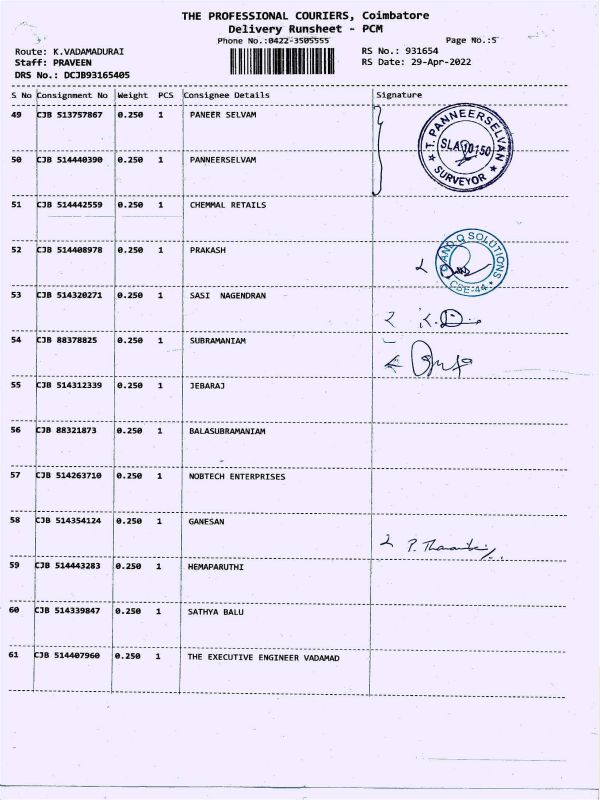 THE PROFESSIONAL COURIERS, Coimbatore
Delivery Runsheet - PCM
Phone No.:0422-3505555
Page No.:5
Route: K.VADAMADURAI
RS No.: 931654
Staff: PRAVEEN
RS Date: 29-Apr-2022
DRS No.: DCJB93165405
S No Consignment No Weight PCS Consignee Details Signature
49 CJB 513757867 0.250 1 PANEER SELVAM
T. PANNEERSELVAN
SLA 10150
SURVEYOR
50 CJB 514440390 0.250 1 PANNEERSELVAM
51 CJB 514442559 0.250 1 CHEMMAL RETAILS
52 CJB 514408978 0.250 1 PRAKASH
Q AND Q SOLUTIONS
CBE-44
53 CJB 514320271 0.250 1 SASI NAGENDRAN
54 CJB 88378825 0.250 1 SUBRAMANIAM
55 CJB 514312339 0.250 1 JEBARAJ
56 CJB 88321873 0.250 1 BALASUBRAMANIAM
57 CJB 514263710 0.250 1 NOBTECH ENTERPRISES
58 CJB 514354124 0.250 1 GANESAN
59 CJB 514443283 0.250 1 HEMAPARUTHI
60 CJB 514339847 0.250 1 SATHYA BALU
61 CJB 514407960 0.250 1 THE EXECUTIVE ENGINEER VADAMAD